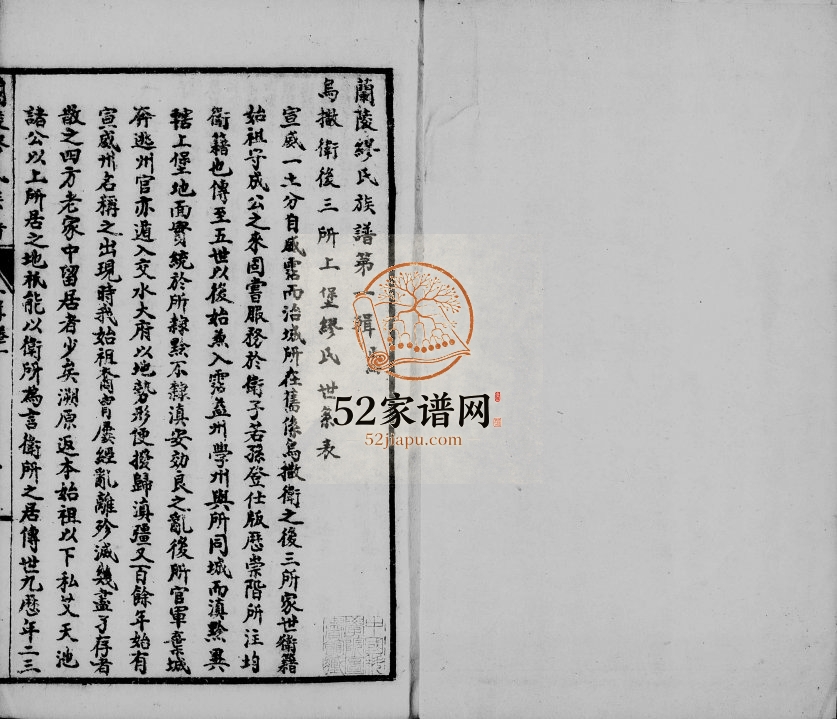 蘭陵繆氏族譜第一輯
烏撒衛後三所上堡繆氏世系表
宣威一土分自威霑而治城所在舊係烏撒衛之後三所家世衛籍
始祖守成公之來固嘗服務於衛子若孫登仕版歷崇階所注均
衛籍也傳至五世以後始兼入霑益州學州與所同城而滇黔異
轄上堡地面實統於所隸黔不隸滇安効良之亂後所官軍棄城
奔逃州官亦遁入交水大府以地勢形便撥歸滇疆又百餘年始有
宣威州名稱之出現時我始祖裔胄屢經亂離殄滅幾盡孑存者
散之四方老家中留居者少矣溯原返本始祖以下私艾天池
諸公以上所居之地祇能以衛所為言衛所之居傳世九歷年二三
52家谱网
52jiapu.com